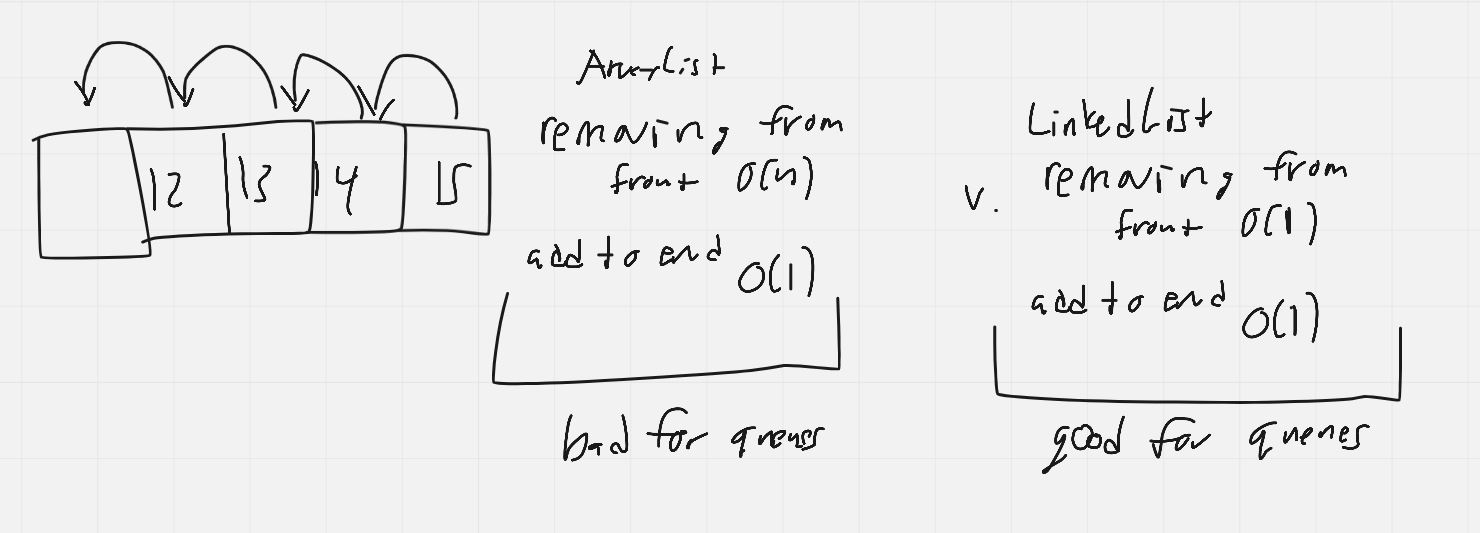 12 13 14 15
ArrayList
removing from
front O(n)
add to end O(1)
bad for queues
v.
LinkedList
removing from
front O(1)
add to end O(1)
good for queues